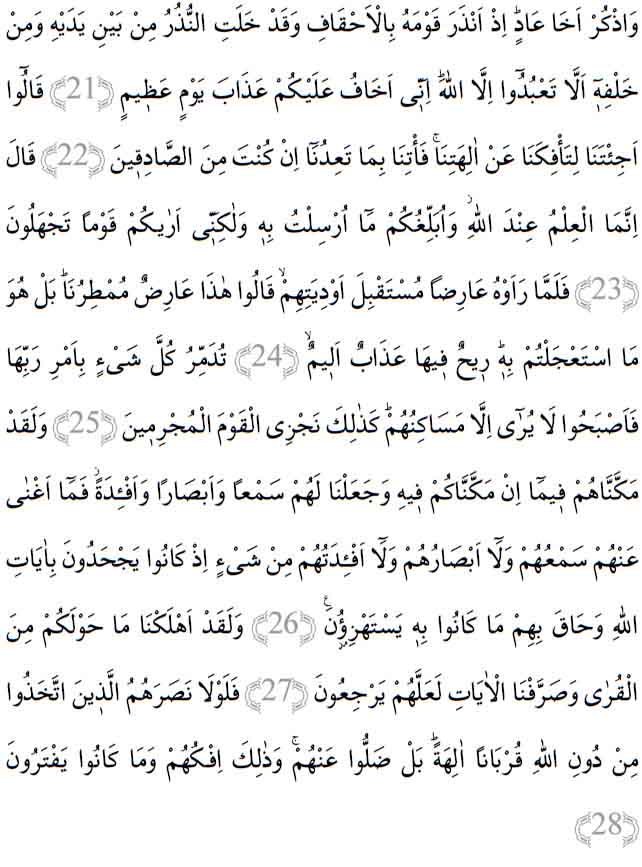 وَاذْكُرْ اَخَا عَادٍۜ اِذْ اَنْذَرَ قَوْمَهُ بِالْاَحْقَافِ وَقَدْ خَلَتِ النُّذُرُ مِنْ بَيْنِ يَدَيْهِ وَمِنْ
خَلْفِه۪ٓ اَلَّا تَعْبُدُٓوا اِلَّا اللّٰهَۜ اِنّ۪ٓي اَخَافُ عَلَيْكُمْ عَذَابَ يَوْمٍ عَظ۪يمٍ ﴿21﴾ قَالُٓوا
اَجِئْتَنَا لِتَأْفِكَنَا عَنْ اٰلِهَتِنَاۚ فَأْتِنَا بِمَا تَعِدُنَٓا اِنْ كُنْتَ مِنَ الصَّادِق۪ينَ ﴿22﴾ قَالَ
اِنَّمَا الْعِلْمُ عِنْدَ اللّٰهِۘ وَاُبَلِّغُكُمْ مَٓا اُرْسِلْتُ بِه۪ وَلٰكِنّ۪ٓي اَرٰيكُمْ قَوْمًا تَجْهَلُونَ
﴿23﴾ فَلَمَّا رَاَوْهُ عَارِضًا مُسْتَقْبِلَ اَوْدِيَتِهِمْۙ قَالُوا هٰذَا عَارِضٌ مُمْطِرُنَاۜ بَلْ هُوَ
مَا اسْتَعْجَلْتُمْ بِه۪ۜ ر۪يحٌ ف۪يهَا عَذَابٌ اَل۪يمٌۙ ﴿24﴾ تُدَمِّرُ كُلَّ شَيْءٍ بِاَمْرِ رَبِّهَا
فَاَصْبَحُوا لَا يُرٰٓى اِلَّا مَسَاكِنُهُمْۜ كَذٰلِكَ نَجْزِي الْقَوْمَ الْمُجْرِم۪ينَ ﴿25﴾ وَلَقَدْ
مَكَّنَّاهُمْ ف۪يمَٓا اِنْ مَكَّنَّاكُمْ ف۪يهِ وَجَعَلْنَا لَهُمْ سَمْعًا وَاَبْصَارًا وَاَفْـِٔدَةًۘ فَمَٓا اَغْنٰى
عَنْهُمْ سَمْعُهُمْ وَلَٓا اَبْصَارُهُمْ وَلَٓا اَفْـِٔدَتُهُمْ مِنْ شَيْءٍ اِذْ كَانُوا يَجْحَدُونَ بِاٰيَاتِ
اللّٰهِ وَحَاقَ بِهِمْ مَا كَانُوا بِه۪ يَسْتَهْزِؤُ۫نَ۟ ﴿26﴾ وَلَقَدْ اَهْلَكْنَا مَا حَوْلَكُمْ مِنَ
الْقُرٰى وَصَرَّفْنَا الْاٰيَاتِ لَعَلَّهُمْ يَرْجِعُونَ ﴿27﴾ فَلَوْلَا نَصَرَهُمُ الَّذ۪ينَ اتَّخَذُوا
مِنْ دُونِ اللّٰهِ قُرْبَانًا اٰلِهَةًۜ بَلْ ضَلُّوا عَنْهُمْۚ وَذٰلِكَ اِفْكُهُمْ وَمَا كَانُوا يَفْتَرُونَ
﴿28﴾